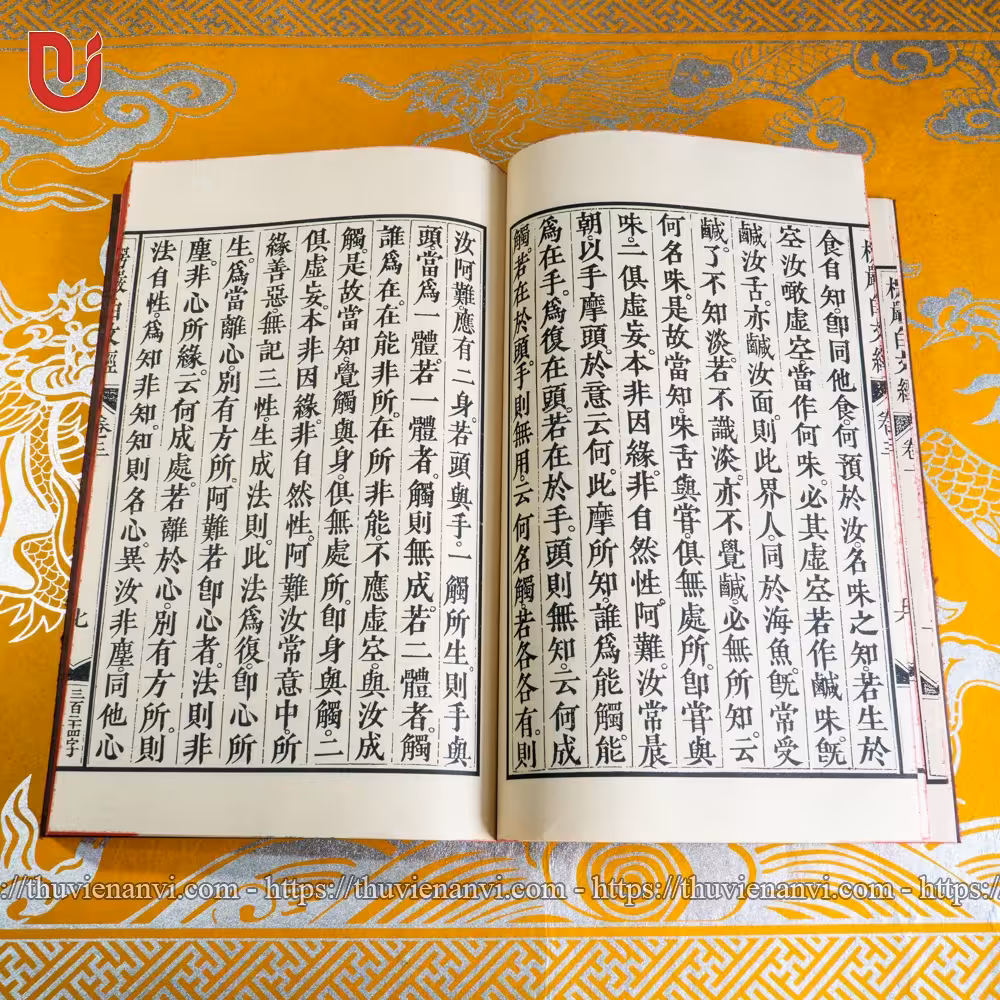 楞嚴白文經 卷三
食自知。卽同他食。何預於汝。名味之知。若生於
空。汝噉虛空。當作何味。必其虛空。若作鹹味。旣
鹹汝舌。亦鹹汝面。則此界人。同於海魚。旣常受
鹹。了不知淡。若不識淡。亦不覺鹹。必無所知。云
何名味。是故當知。味舌與嘗。俱無處所。卽嘗與
味。二俱虛妄。本非因緣。非自然性。阿難。汝常晨
朝。以手摩頭。於意云何。此摩所知。誰爲能觸。能
爲在手。爲復在頭。若在於手。頭則無知。云何成
觸。若在於頭。手則無用。云何名觸。若各各有。則
汝阿難。應有二身。若頭與手。一觸所生。則手與
頭。當爲一體。若一體者。觸則無成。若二體者。觸
誰爲在。在能非所。在所非能。不應虛空。與汝成
觸。是故當知。覺觸與身。俱無處所。卽身與觸。二
俱虛妄。本非因緣。非自然性。阿難。汝常意中。所
緣善惡。無記三性。生成法則。此法爲復。卽心所
生。爲當離心。別有方所。阿難。若卽心者。法則非
塵。非心所緣。云何成處。若離於心。別有方所。則
法自性。爲知非知。知則名心。異汝非塵。同他心
卷三
三百二十四字
://thuvienanvi.com - https://thuvienanvi.com - https://thuvienanvi.com - https://